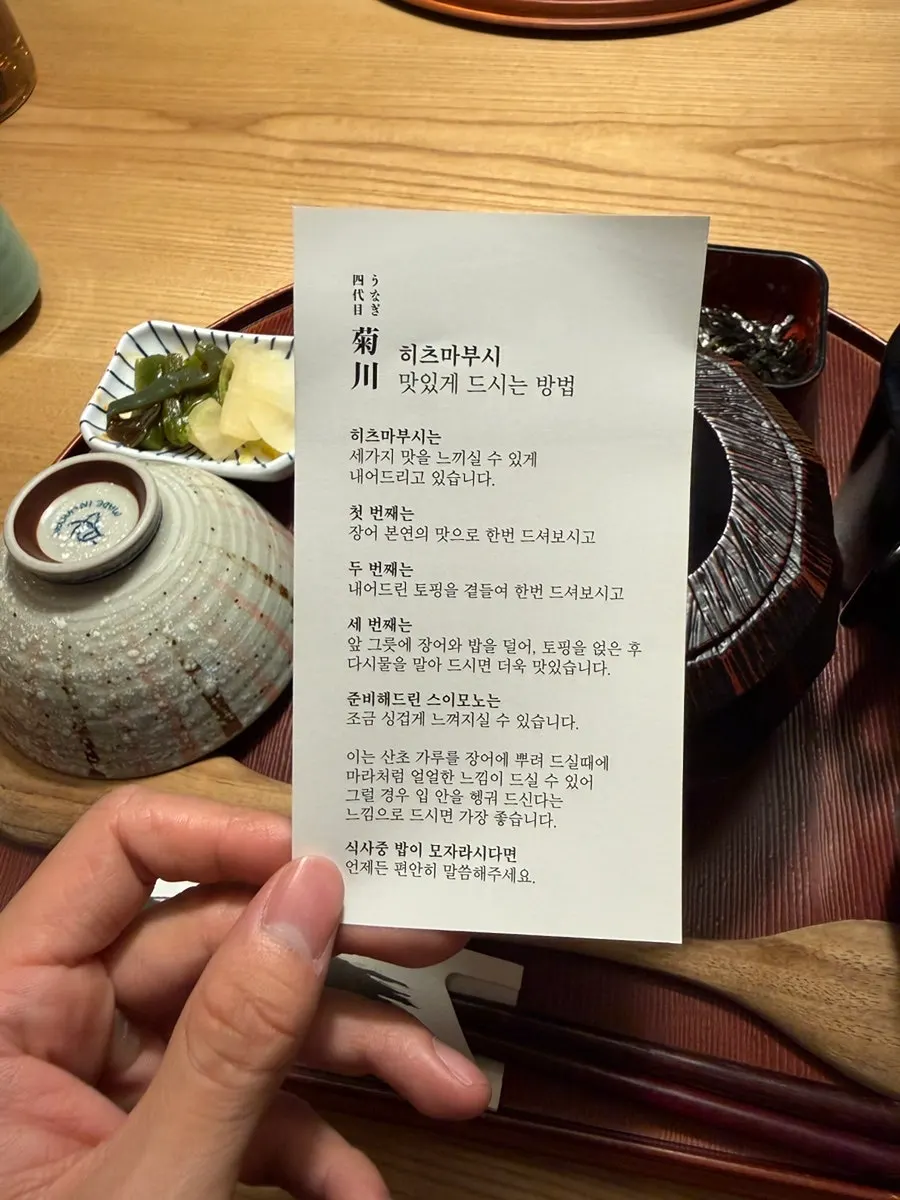 うなぎ
四代目
菊川
히츠마부시
맛있게 드시는 방법
히츠마부시는
세가지 맛을 느끼실 수 있게
내어드리고 있습니다.
첫 번째는
장어 본연의 맛으로 한번 드셔보시고
두 번째는
내어드린 토핑을 곁들여 한번 드셔보시고
세 번째는
앞 그릇에 장어와 밥을 덜어, 토핑을 얹은 후
다시물을 말아 드시면 더욱 맛있습니다.
준비해드린 스이모노는
조금 싱겁게 느껴지실 수 있습니다.
이는 산초 가루를 장어에 뿌려 드실때에
마라처럼 얼얼한 느낌이 드실 수 있어
그럴 경우 입 안을 헹궈 드신다는
느낌으로 드시면 가장 좋습니다.
식사중 밥이 모자라시다면
언제든 편안히 말씀해주세요.
MADE IN JAPAN